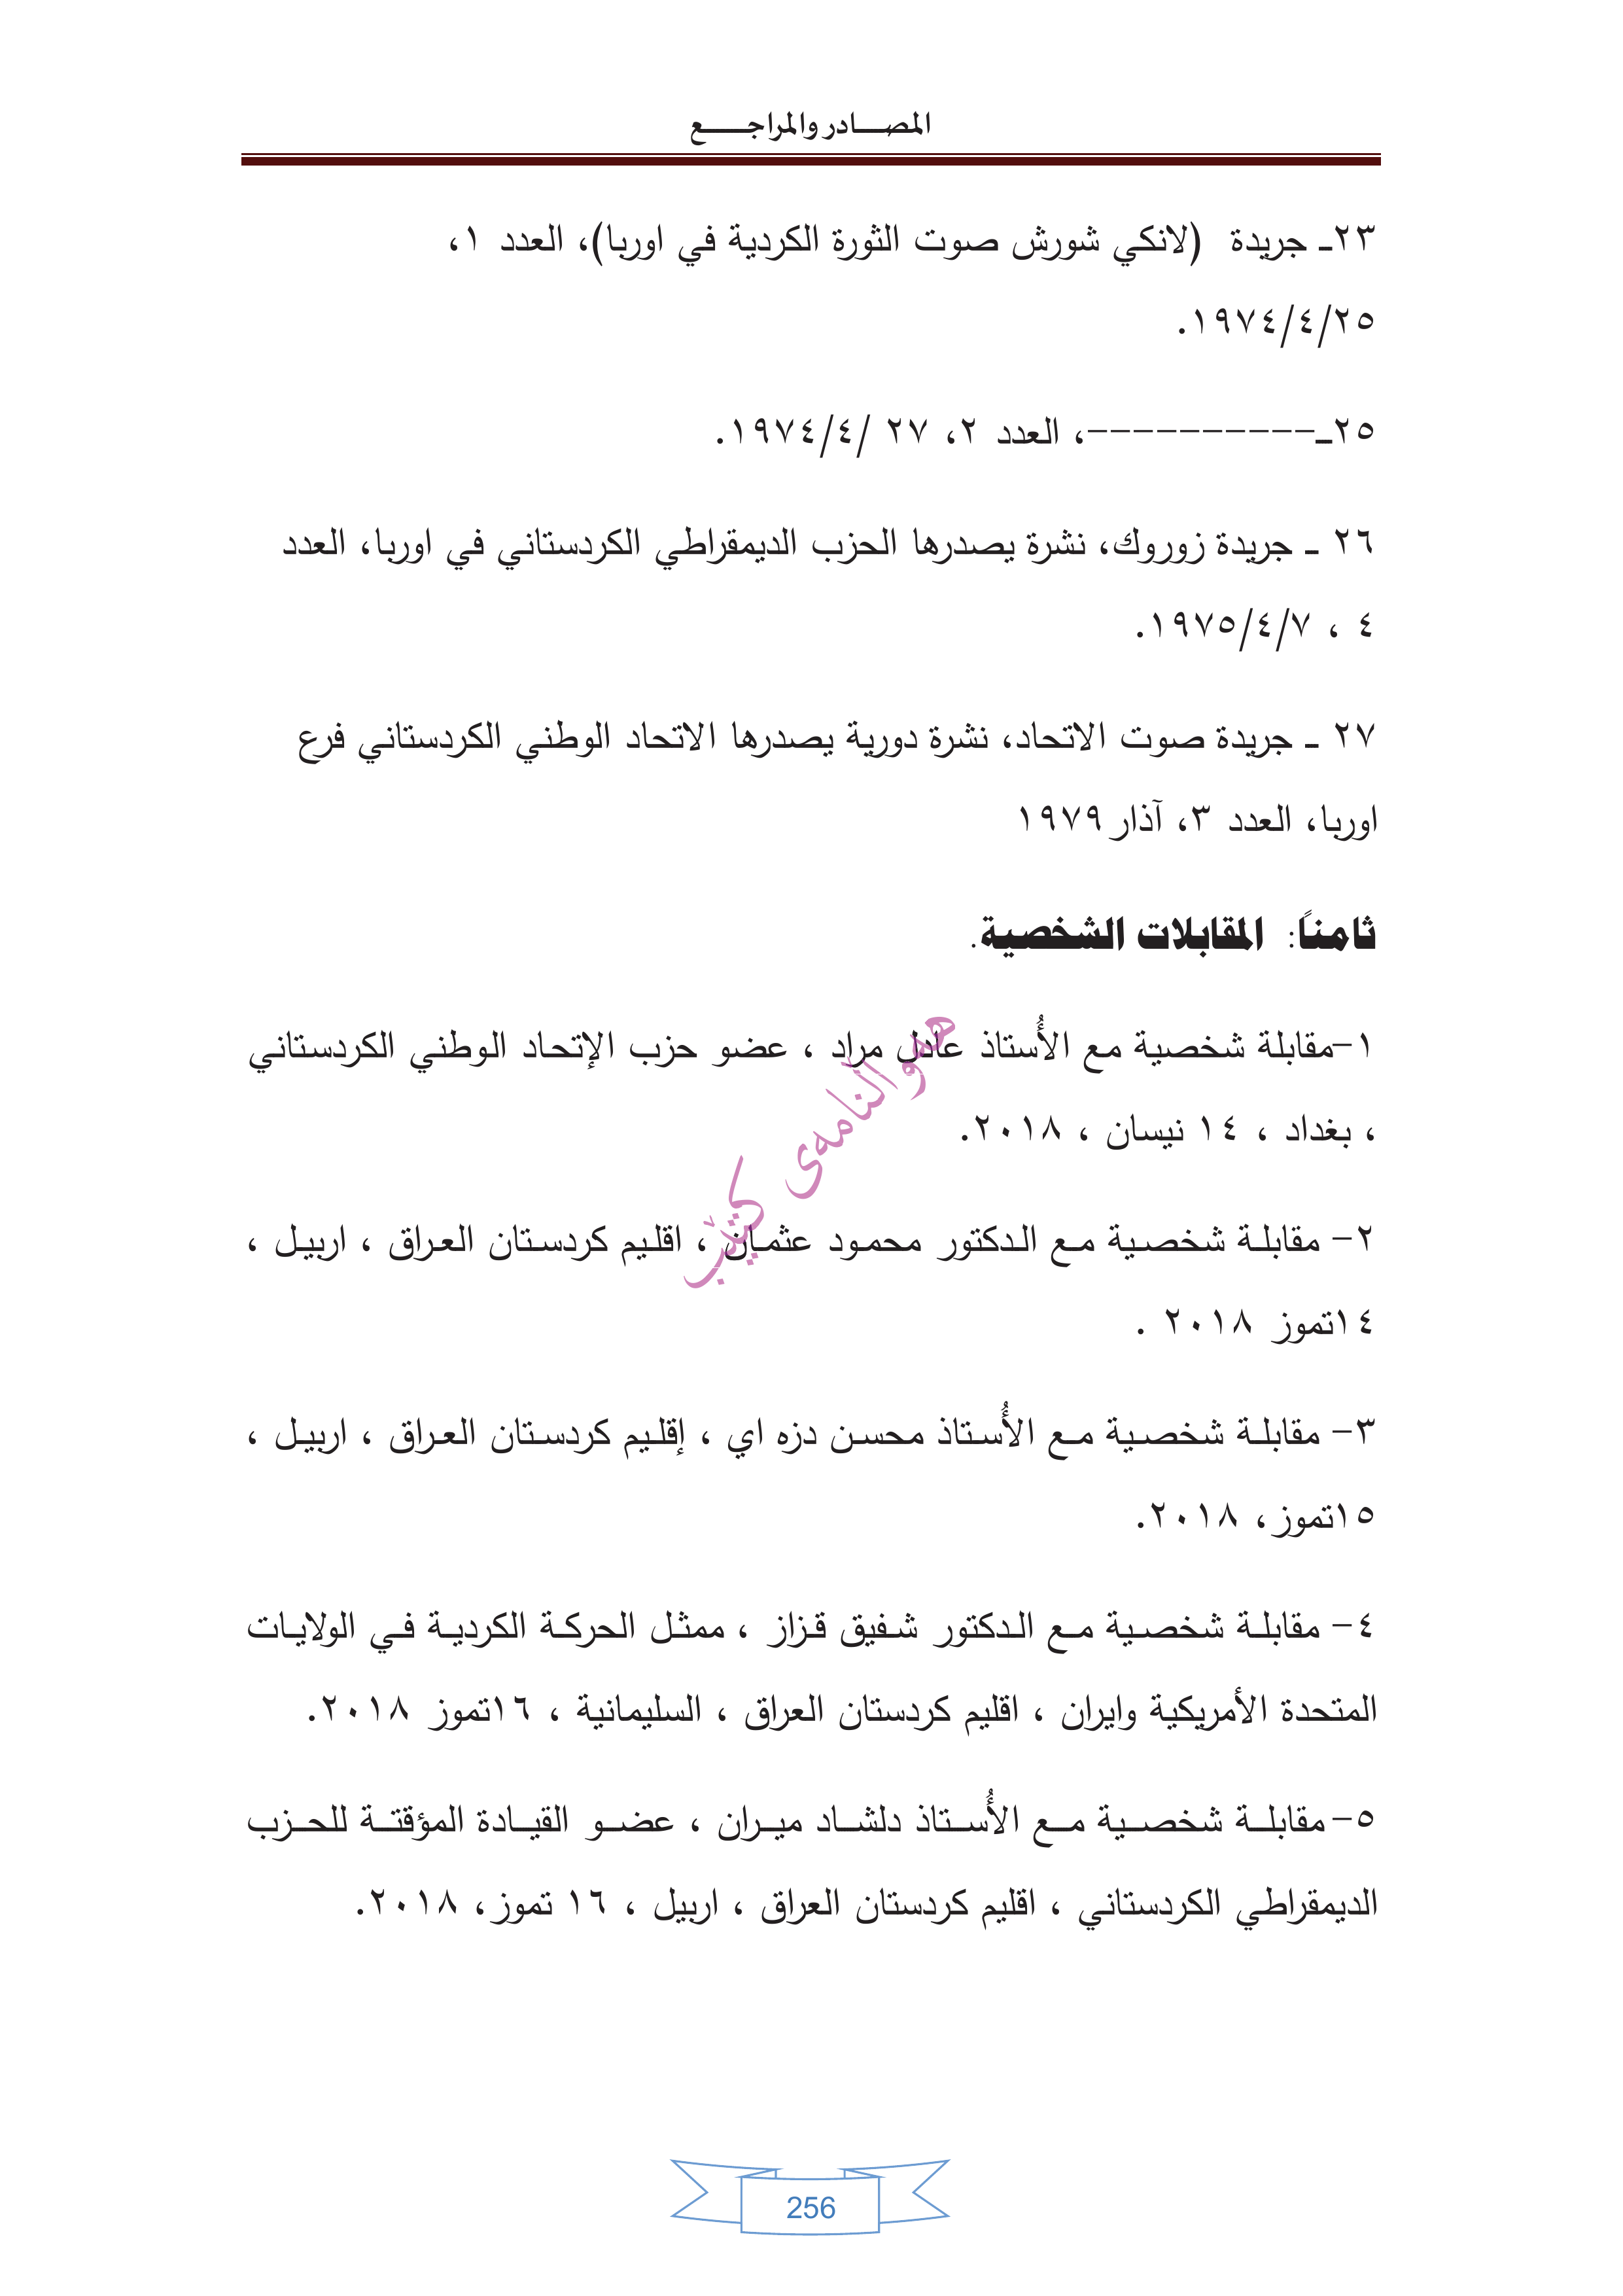 المصـــادر والمراجـــــع
٢٣ـ جريدة (لانكي شورش صوت الثورة الكردية في اوربا)، العدد ١،
٢٥/٤/١٩٧٤.
٢٥ـ-----------، العدد ٢، ٢٧ /٤/١٩٧٤.
٢٦ ـ جريدة زوروك، نشرة يصدرها الحزب الديمقراطي الكردستاني في اوربا، العدد
٤ ، ٧/٤/١٩٧٥.
٢٧ ـ جريدة صوت الاتحاد، نشرة دورية يصدرها الاتحاد الوطني الكردستاني فرع
اوربا، العدد ٣، آذار١٩٧٩
ثامناً: المقابلات الشخصية.
١-مقابلة شخصية مع الأُستاذ عادل مراد ، عضو حزب الإتحاد الوطني الكردستاني
، بغداد ، ١٤ نيسان ، ٢٠١٨.
هەواڵنامەی کتێب
٢- مقابلة شخصية مع الدكتور محمود عثمان ، اقليم كردستان العراق ، اربيل ،
١٤تموز ٢٠١٨ .
٣- مقابلة شخصية مع الأُستاذ محسن دزه اي ، إقليم كردستان العراق ، اربيل ،
١٥تموز، ٢٠١٨.
٤- مقابلة شخصية مع الدكتور شفيق قزاز ، ممثل الحركة الكردية في الولايات
المتحدة الأمريكية وايران ، اقليم كردستان العراق ، السليمانية ، ١٦تموز ٢٠١٨.
٥- مقابلة شخصية مع الأُستاذ دلشاد ميران ، عضو القيادة المؤقتة للحزب
الديمقراطي الكردستاني ، اقليم كردستان العراق ، اربيل ، ١٦ تموز، ٢٠١٨.
256